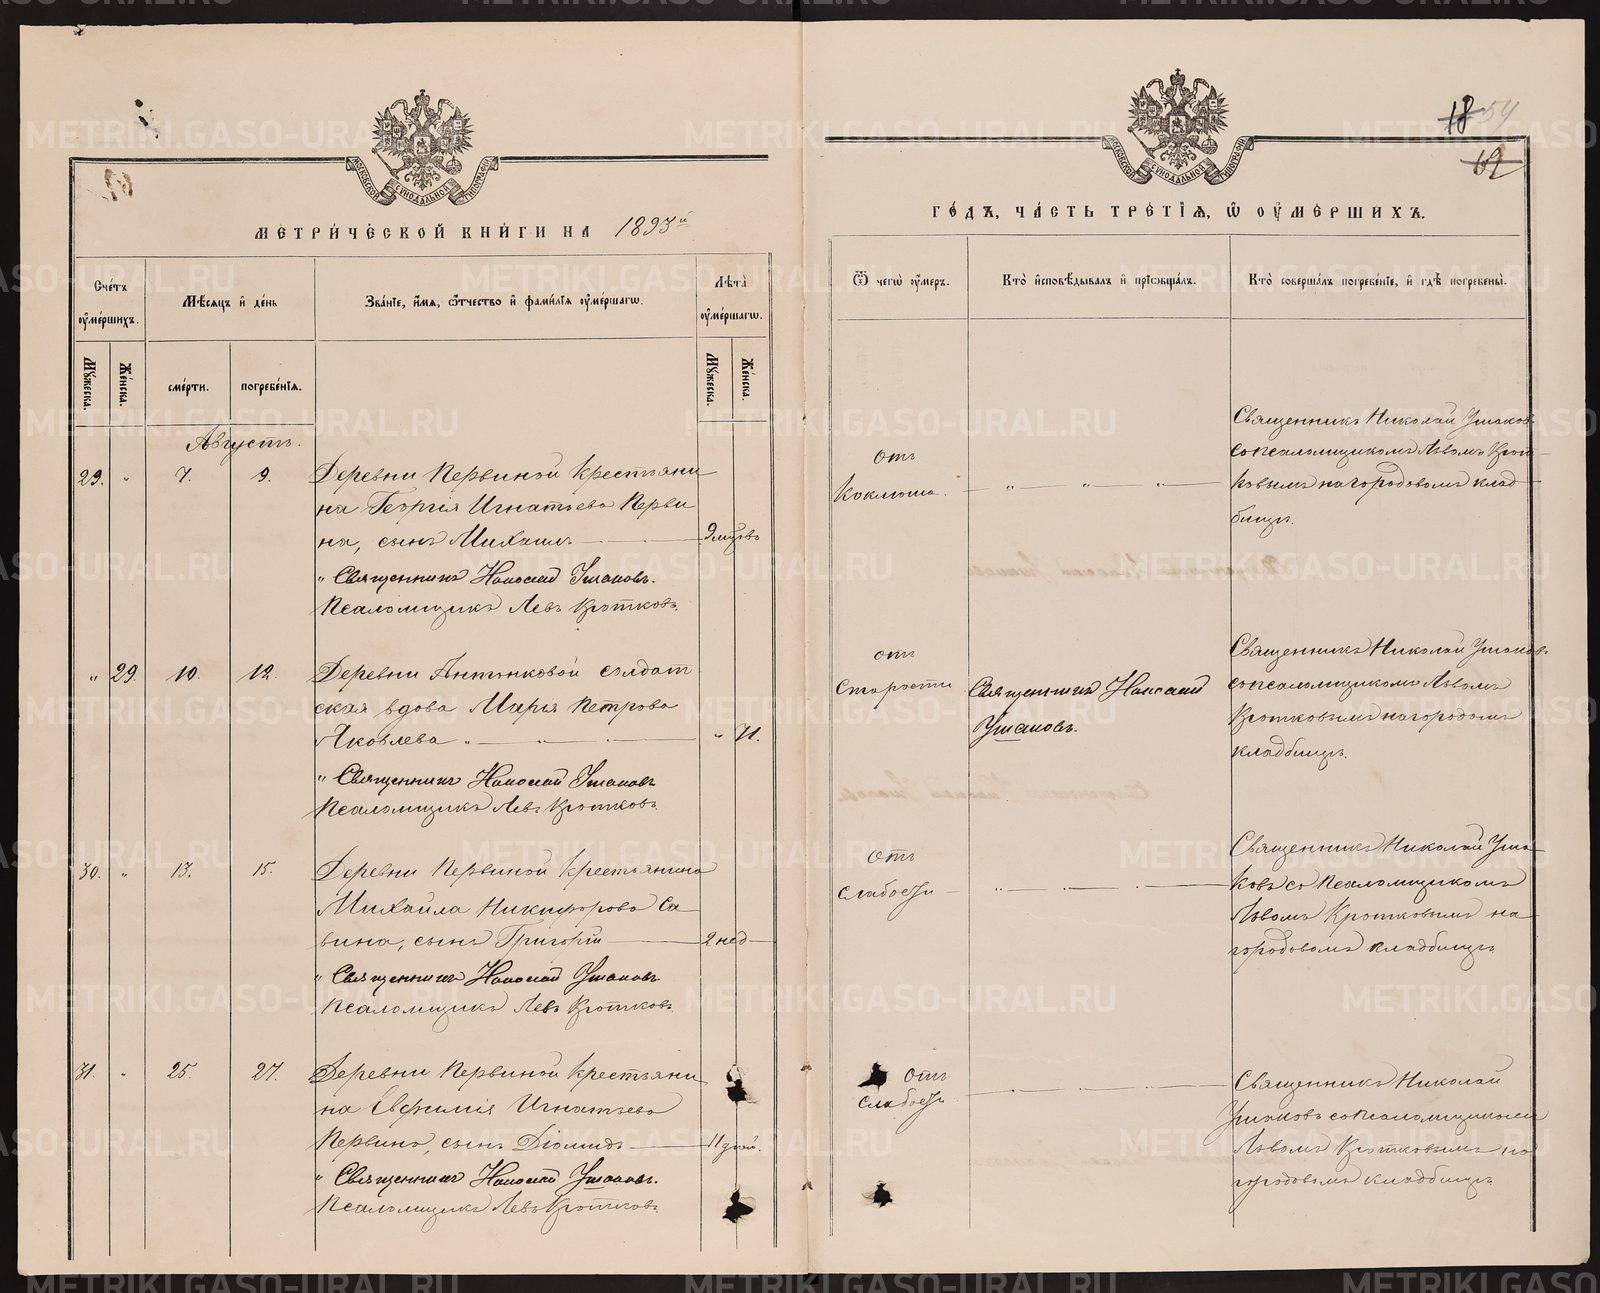 МЕТРИ́ЧЕСКОЙ КНИ́ГИ НА 1893й
Сче́тъ оуме́ршихъ.
Мѣ́сяцъ и де́нь
Зва́нїе, и́мя, ѻ́тчество и фами́лїя оуме́ршагѡ.
Лѣ́та оуме́ршагѡ.
Му́жеска.
Же́нска.
сме́рти.
погребе́нїя.
Му́жеска.
Же́нска.
Августъ.
29. " 7. 9. Деревни Первиной крестьяни
на Георгія Игнатьева Перви
на, сынъ Михаилъ 9 мцовъ
" Священникъ Николай Ушаковъ.
Псаломщикъ Левъ Кротковъ.
" 29. 10. 12. Деревни Антонковой солдат
ская вдова Марія Петрова
Яковлева " " 71.
" Священникъ Николай Ушаковъ
Псаломщикъ Левъ Кротковъ.
30. " 13. 15. Деревни Первиной крестьянина
Михаила Никифорова Са
вина, сынъ Григорій 2 нед
" Священникъ Николай Ушаковъ
Псаломщикъ Левъ Кротковъ.
31. " 25. 27. Деревни Первиной крестьяни
на Евфимія Игнатьева
Первина, сынъ Діомидъ 11 дней.
" Священникъ Николай Ушаковъ.
Псаломщикъ Левъ Кротковъ.
18 54
62
МОСКОВСКОЙ СѴНОДАЛЬНОЙ ТИПОГРАФІИ
ГО́ДЪ, ЧА́СТЬ ТРЕ́ТЇЯ, Ѽ ОУМЕ́РШИХЪ.
Ѿ чегѡ̀ оу́меръ.
Кто̀ исповѣ́дывалъ и прїѡбща́лъ.
Кто̀ соверша́лъ погребе́нїе, и гдѣ̀ погребены̀.
отъ
коклюша.
" " "
Священникъ Николай Ушаковъ
со псаломщикомъ Львомъ Крот
ковымъ на городовомъ клад
бищѣ.
отъ
старости
Священникъ Николай
Ушаковъ.
Священникъ Николай Ушаковъ
со псаломщикомъ Львомъ
Кротковымъ на городовомъ
кладбищѣ.
отъ
слабости
Священникъ Николай Уша
ковъ со псаломщикомъ
Львомъ Кротковымъ на
городовомъ кладбищѣ
отъ
слабости
Священникъ Николай
Ушаковъ со псаломщикомъ
Львомъ Кротковымъ на
городовомъ кладбищѣ.
METRIKI.GASO-URAL.RU